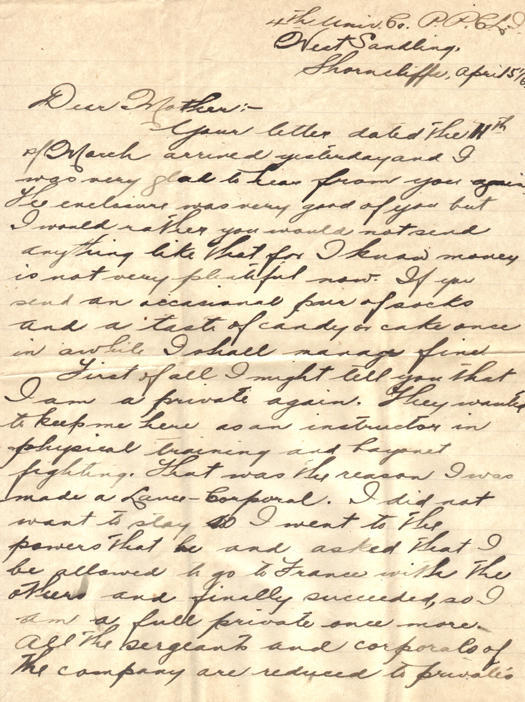 4th Univ. Co. P.P.C.L.I.
West Sandling,
Shorncliffe, April 5/16
Dear Mother:-
Your letter dated the 11th
of March arrived yesterday and I
was very glad to hear from you again
The enclosure was very good of you but
I would rather you would not send
anything like that for I know money
is not very plentiful now. If you
send an occasional pair of socks
and a taste of candy or cake once
in awhile I shall manage fine
First of all I might tell you that
I am a private again. They wanted
to keep me here as an instructor in
physical training and bayonet
fighting. That was the reason I was
made a Lance-Corporal. I did not
want to stay so I went to the
powers that be and asked that I
be allowed to go to France with the
others and finally succeeded, so I
am a full private once more.
All the sergeants and corporals of
the company are reduced to privates